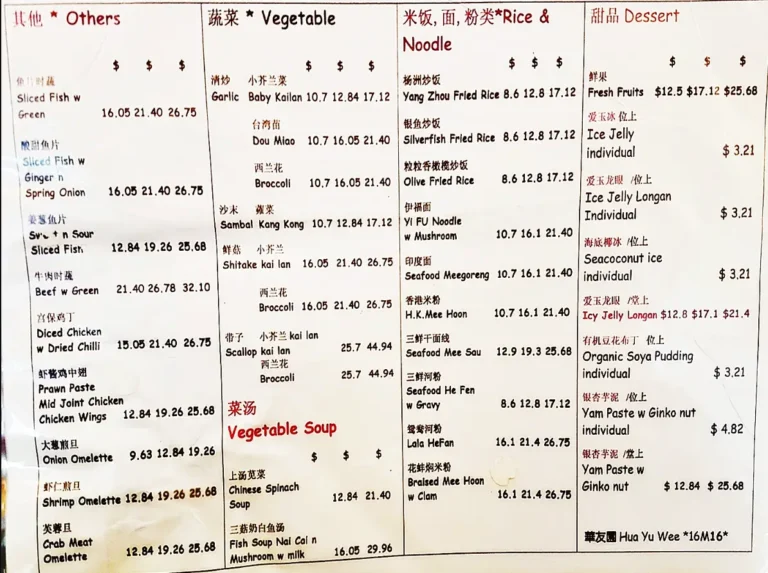 其他 * Others
$ $ $
鱼片时蔬
Sliced Fish w
Green 16.05 21.40 26.75
酸甜鱼片
Sliced Fish w
Ginger n
Spring Onion 16.05 21.40 26.75
姜葱鱼片
n Sour
Sliced Fish 12.84 19.26 25.68
牛肉时蔬
Beef w Green 21.40 26.78 32.10
宫保鸡丁
Diced Chicken
w Dried Chilli 15.05 21.40 26.75
虾酱鸡中翅
Prawn Paste
Mid Joint Chicken
Chicken Wings 12.84 19.26 25.68
大葱煎旦
Onion Omelette 9.63 12.84 19.26
虾仁煎旦
Shrimp Omelette 12.84 19.26 25.68
芙蓉旦
Crab Meat
Omelette 12.84 19.26 25.68
蔬菜 * Vegetable
$ $ $
清炒 小芥兰菜
Garlic Baby Kailan 10.7 12.84 17.12
台湾苗
Dou Miao 10.7 16.05 21.40
西兰花
Broccoli 10.7 16.05 21.40
沙末 蕹菜
Sambal Kang Kong 10.7 12.84 17.12
鲜菇 小芥兰
Shitake kai lan 16.05 21.40 26.75
西兰花
Broccoli 16.05 21.40 26.75
带子 小芥兰 kai lan
Scallop kai lan 25.7 44.94
西兰花
Broccoli 25.7 44.94
菜汤
Vegetable Soup
$ $ $
上汤苋菜
Chinese Spinach
Soup 12.84 21.40
三菇奶白鱼汤
Fish Soup Nai Cai n
Mushroom w milk 16.05 29.96
米饭, 面, 粉类*Rice &
Noodle
$ $ $
杨洲炒饭
Yang Zhou Fried Rice 8.6 12.8 17.12
银鱼炒饭
Silverfish Fried Rice 8.6 12.8 17.12
粒粒香橄榄炒饭
Olive Fried Rice 8.6 12.8 17.12
伊福面
YI FU Noodle
w Mushroom 10.7 16.1 21.40
印度面
Seafood Meegoreng 10.7 16.1 21.40
香港米粉
H.K.Mee Hoon 10.7 16.1 21.40
三鲜干面线
Seafood Mee Sau 12.9 19.3 25.68
三鲜河粉
Seafood He Fen
w Gravy 8.6 12.8 17.12
鸳鸯河粉
Lala HeFan 16.1 21.4 26.75
花蚌焖米粉
Braised Mee Hoon
w Clam 16.1 21.4 26.75
甜品 Dessert
$ $ $
鲜果
Fresh Fruits $12.5 $17.12 $25.68
爱玉冰 位上
Ice Jelly
individual $ 3.21
爱玉龙眼 /位上
Ice Jelly Longan
Individual $ 3.21
海底椰冰 /位上
Seacoconut ice
individual $ 3.21
爱玉龙眼 /堂上
Icy Jelly Longan $12.8 $17.1 $21.4
有机豆花布丁 位上
Organic Soya Pudding
individual $ 3.21
银杏芋泥 /位上
Yam Paste w Ginko nut
individual $ 4.82
银杏芋泥 /堂上
Yam Paste w
Ginko nut $ 12.84 $ 25.68
華友園 Hua Yu Wee *16M16*